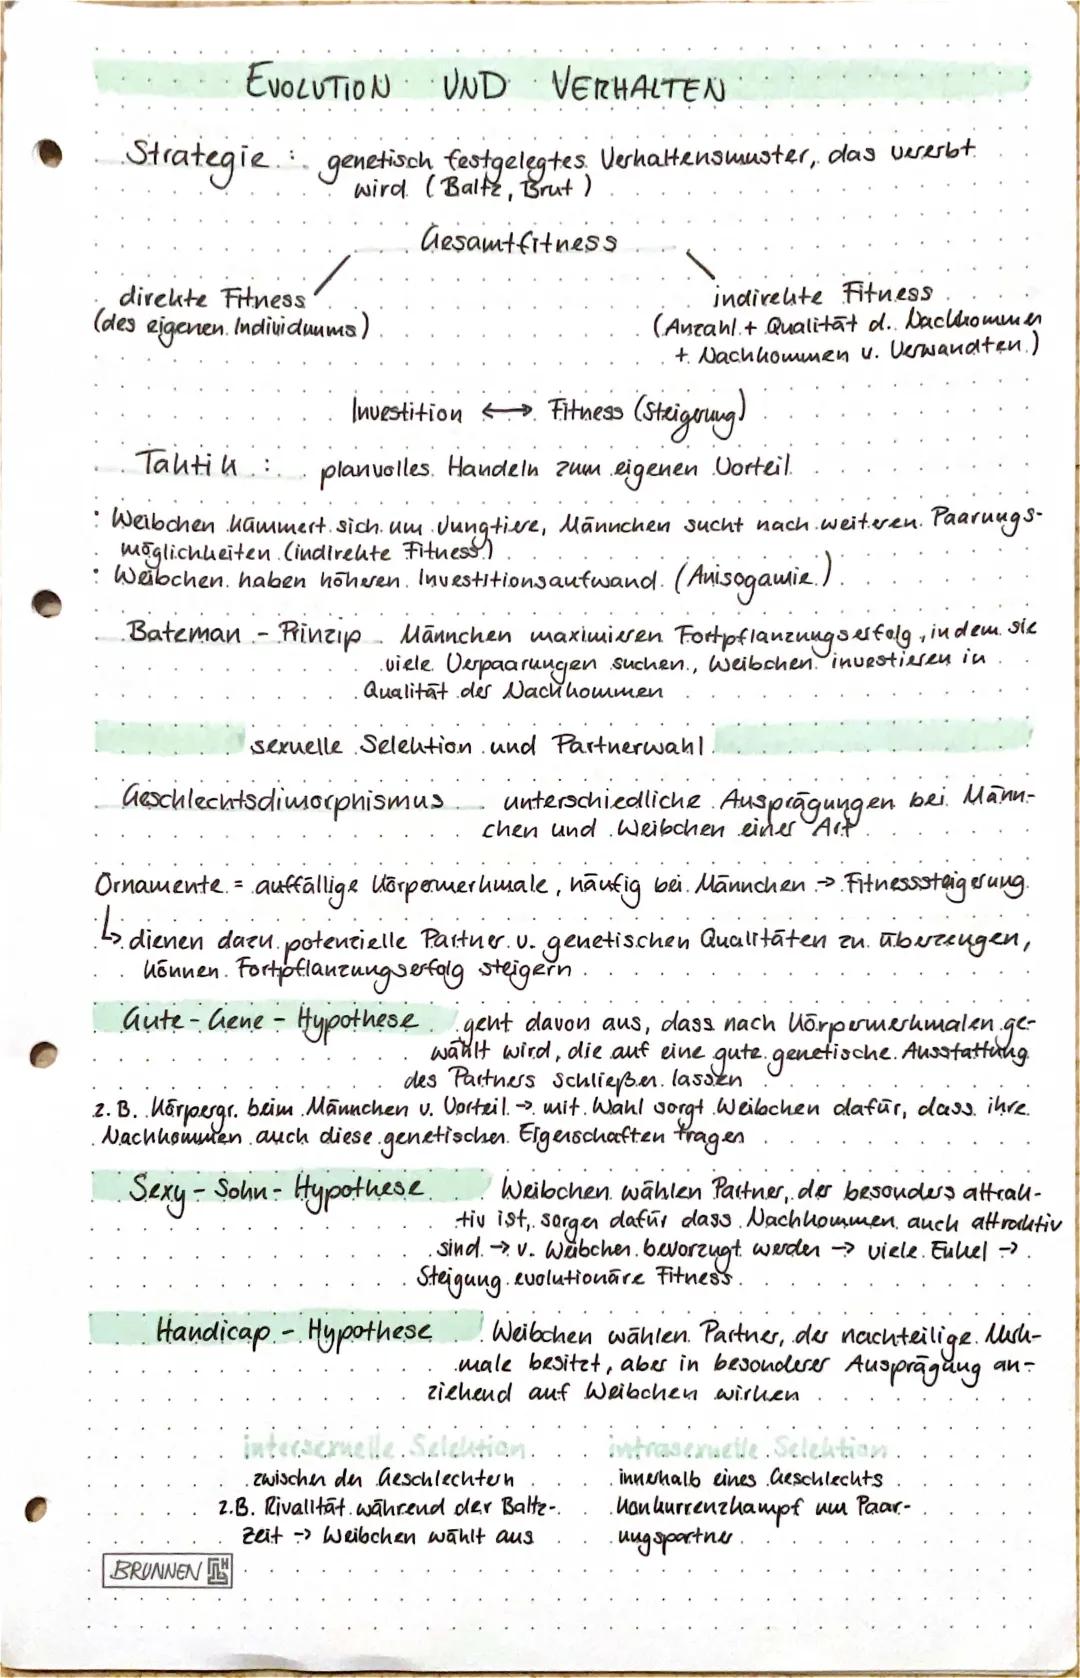 EVOLUTION UND VERHALTEN
Strategie : genetisch festgelegtes Verhaltensmuster, das vererbt
wird (Baltz, Brut)
Gesamtfitness
direkte Fitness
(des eigenen Individuums)
indirekte Fitness
(Anzahl + Qualität d. Nachkommen
+ Nachkommen v. Verwandten)
Investition ↔ Fitness (Steigerung)
Taktik : planvolles Handeln zum eigenen Vorteil
• Weibchen kümmert sich um Jungtiere, Männchen sucht nach weiteren Paarungs-
möglichkeiten (indirekte Fitness)
• Weibchen haben höheren Investitionsaufwand (Anisogamie)
Bateman - Prinzip Männchen maximieren Fortpflanzungserfolg, indem sie
viele Verpaarungen suchen, Weibchen investieren in
Qualität der Nachkommen
sexuelle Selektion und Partnerwahl
Geschlechtsdimorphismus unterschiedliche Ausprägungen bei Männ-
chen und Weibchen einer Art
Ornamente = auffällige Körpermerkmale, häufig bei Männchen → Fitnesssteigerung
↳ dienen dazu potenzielle Partner v. genetischen Qualitäten zu überzeugen,
können Fortpflanzungserfolg steigern
Gute - Gene - Hypothese geht davon aus, dass nach Körpermerkmalen ge-
wählt wird, die auf eine gute genetische Ausstattung
des Partners schließen lassen
z. B. Körpergr. beim Männchen v. Vorteil → mit Wahl sorgt Weibchen dafür, dass ihre
Nachkommen auch diese genetischen Eigenschaften tragen
Sexy - Sohn - Hypothese Weibchen wählen Partner, der besonders attrak-
tiv ist, sorgen dafür dass Nachkommen auch attraktiv
sind → v. Weibchen bevorzugt werden → viele Enkel →
Steigung evolutionäre Fitness
Handicap - Hypothese Weibchen wählen Partner, der nachteilige Merk-
male besitzt, aber in besonderer Ausprägung an-
ziehend auf Weibchen wirken
intersexuelle Selektion
zwischen den Geschlechtern
z.B. Rivalität während der Baltz-
zeit → Weibchen wählt aus
intrasexuelle Selektion
innerhalb eines Geschlechts
Konkurrenzkampf um Paar-
ungspartner
BRUNNEN